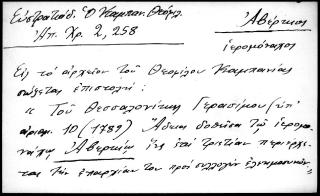 Εὐστρατιάδ. Ὁ Καμπαν. Θεόφιλ.
Ἀπ. Χρ. 2, 258
Ἀβέρκιος
ἱερομόναχος
Εἰς τὸ ἀρχεῖον τοῦ Θεοφίλου Καμπανίας
σώζεται ἐπιστολή:
« Τοῦ Θεσσαλονίκης Γερασίμου (ὑπ'
ἀριθμ. 10 (1789) Ἄδεια δοθεῖσα τῷ ἱερομο-
νάχῳ Ἀβερκίῳ ἐπὶ τριετίαν περιερχό-
τας τὴν ἐπαρχίαν του πρὸς συλλογὴν ἐλεημοσυνῶν»